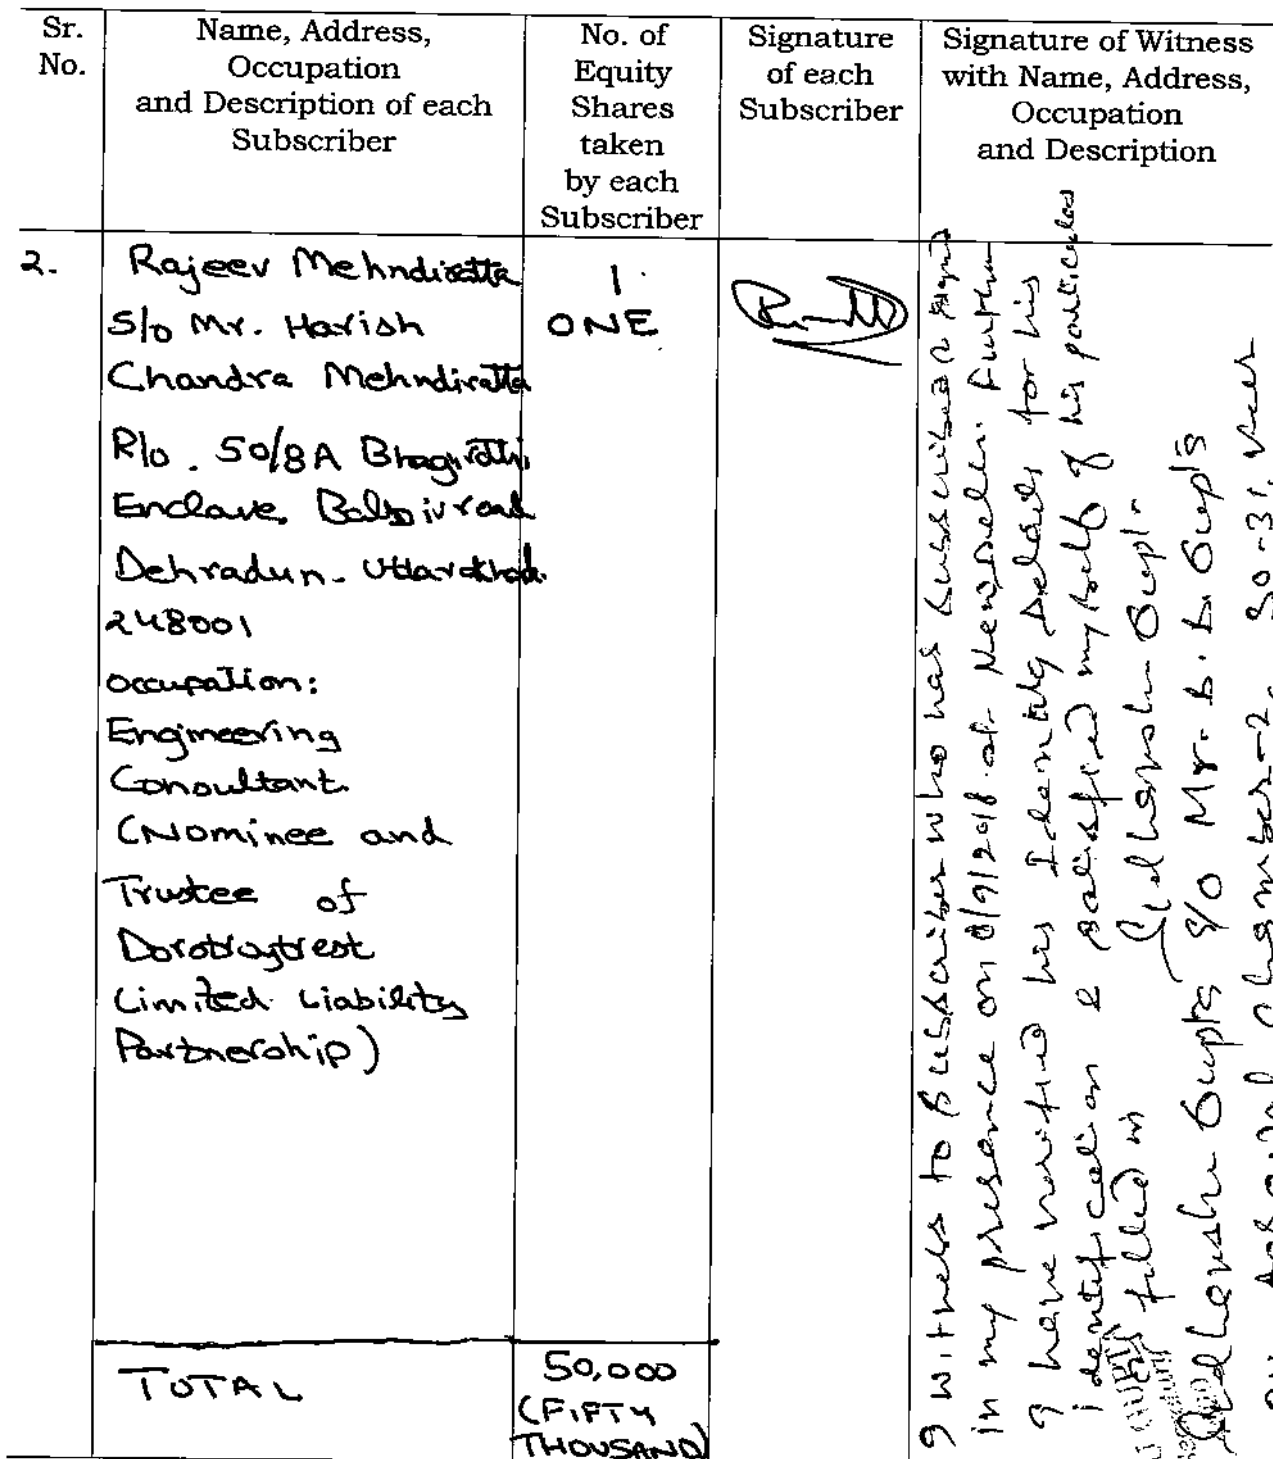 Sr.
No.
Name, Address,
Occupation
and Description of each
Subscriber
No. of
Equity
Shares
taken
by each
Subscriber
Signature
of each
Subscriber
Signature of Witness
with Name, Address,
Occupation
and Description
2.
Rajeev Mehndiratta
S/o Mr. Harish
Chandra Mehndiratta
R/o. 50/8A Bhagirathi
Enclave,
Dehradun- Uttarakhand.
248001
occupation:
Engineering
Consultant
(Nominee and
Trustee of
Limited Liability
Partnership)
1
ONE
I witness to subscriber who has subscribed & signed
in my presence on at New Delhi. Further
I have verified his Identity Details for his
identification & satisfied myself of his particulars
as filled in
Gupta S/o Mr. Gupta
Chamber-2, 30-31,
TOTAL
50,000
(FIFTY
THOUSAND)